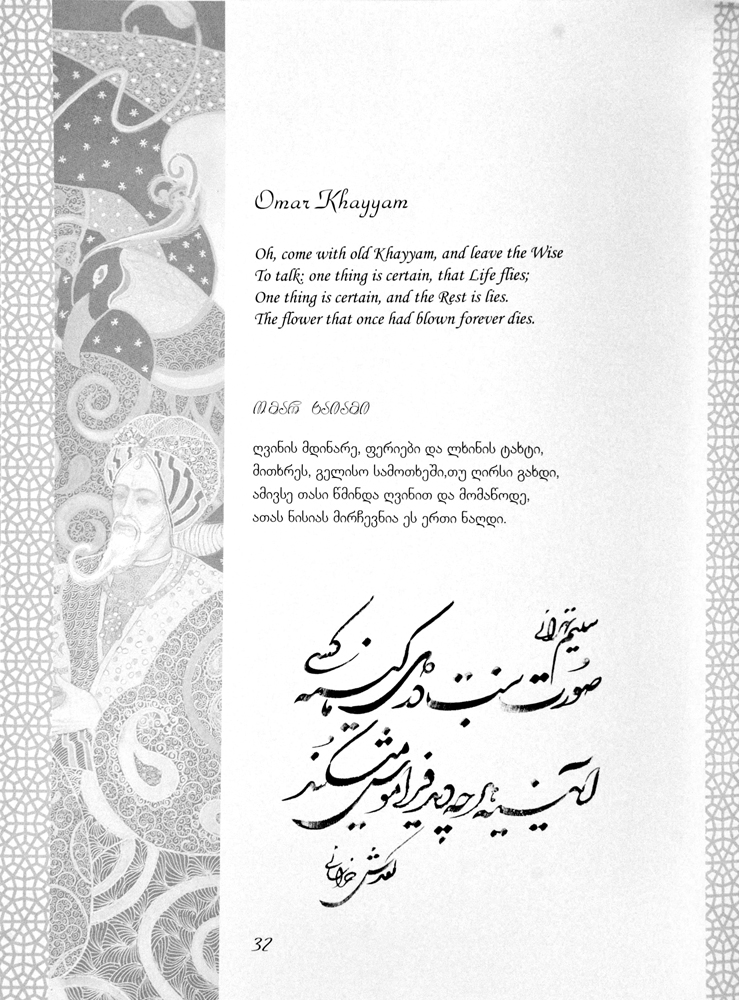 Omar Khayyam
Oh, come with old Khayyam, and leave the Wise
To talk: one thing is certain, that Life flies;
One thing is certain, and the Rest is lies.
The flower that once had blown forever dies.
ომარ ხაიამი
ღვინის მდინარე, ფერიები და ლხინის ტახტი,
მითხრეს, გელისო სამოთხეში,თუ ღირსი გახდი,
ამივსე თასი წმინდა ღვინით და მომაწოდე,
ათას ნისიას მირჩევნია ეს ერთი ნაღდი.
سلیم تهرانی
صورت نبست در دل ما کینه کسی
آیینه هرچه دید فراموش میکند
32